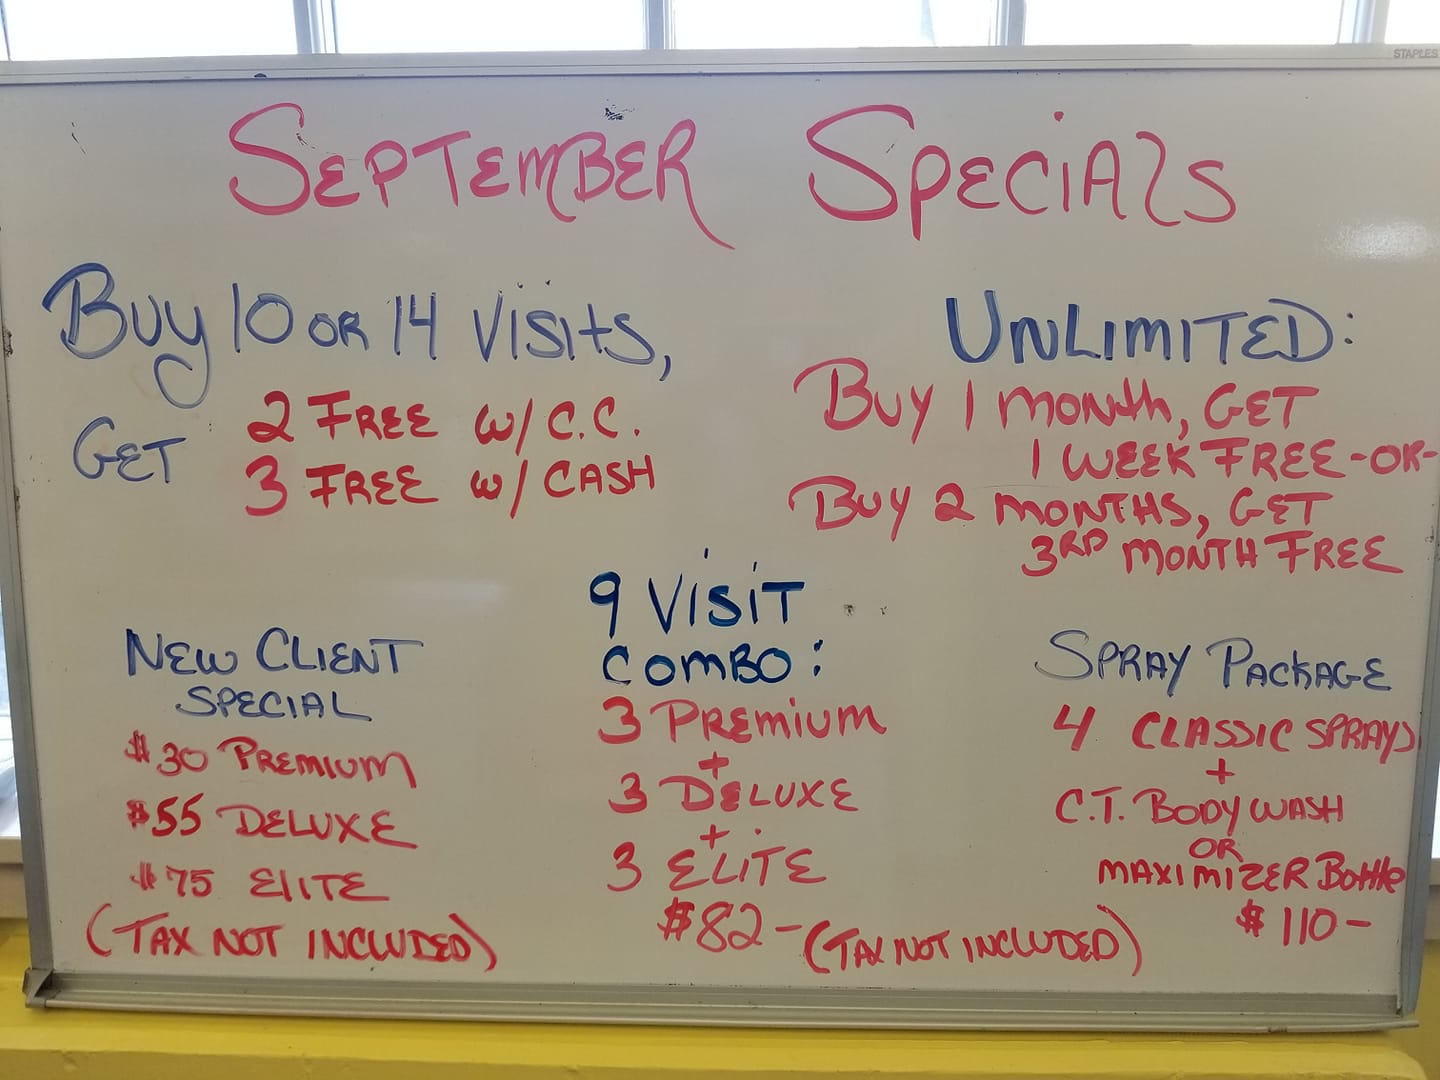 STAPLES
SEPTEMBER SPECiAlS
BUY 10 OR 14 VISITS,
GET 2 FREE W/ C.C.
3 FREE W/ CASH
UNLIMITED:
BUY 1 MONTH, GET
1 WEEK FREE -OR-
BUY 2 MONTHS, GET
3RD MONTH FREE
NEW CLIENT
SPECIAL
$30 PREMIUM
$55 DELUXE
$75 ElITE
(TAX NOT INCLUDED)
9 ViSiT
COMBO:
3 PREMIUM
+
3 DELUXE
+
3 ELiTE
$82-
(TAX NOT INCLUDED)
SPRAY PACKAGE
4 CLASSIC SPRAYS
+
C.T. BODY WASH
OR
MAXIMIZER Bottle
$110-